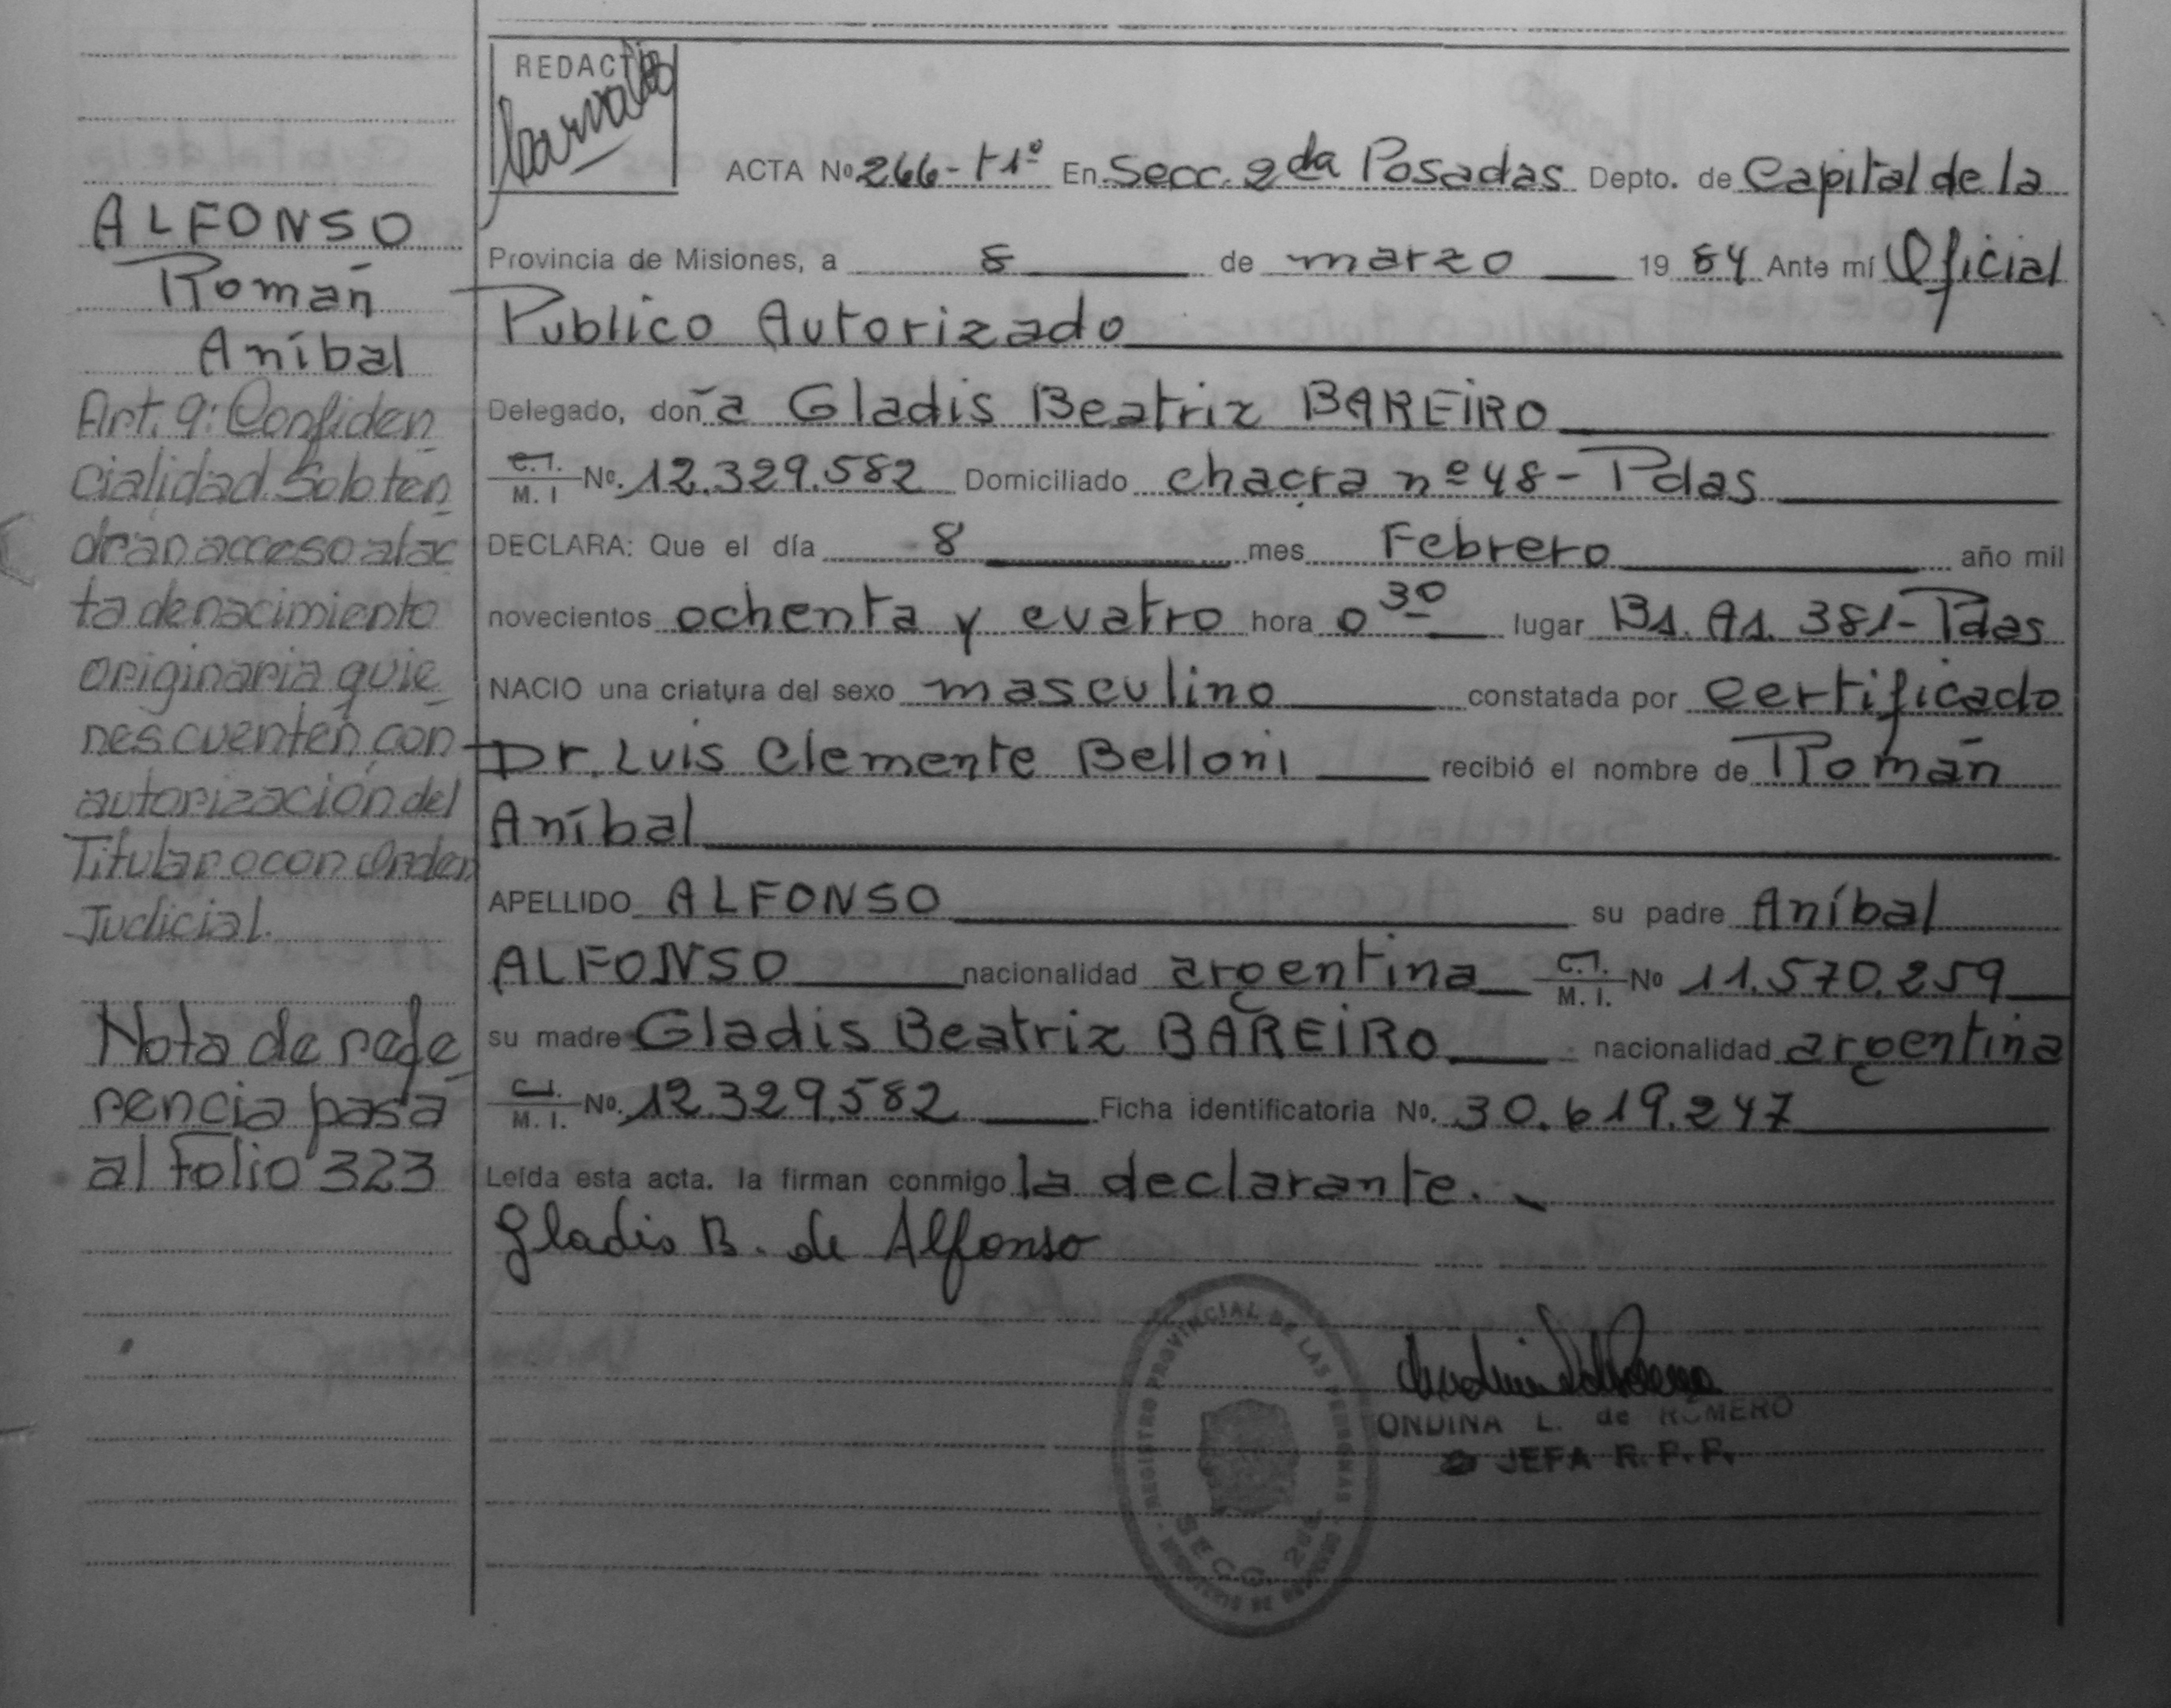 ALFONSO
Román
Aníbal
Art. 9: Confiden
cialidad. Solo ten
drán acceso al ac
ta de nacimiento
originaria quie
nes cuenten con
autorización del
Titular o con Orden
Judicial.
Nota de refe
rencia pasa
al Folio 323
REDACTÓ
ACTA Nº 266-t1º En Secc. 2da Posadas Depto. de Capital de la
Provincia de Misiones, a 8 de marzo 1984 Ante mí Oficial
Publico Autorizado
Delegado, doña Gladis Beatriz BAREIRO
C.I. M. I Nº. 12.329.582 Domiciliado chacra nº 48- Pdas
DECLARA: Que el día 8 mes Febrero año mil
novecientos ochenta y cuatro hora 0 30 lugar Bs. As. 381- Pdas
NACIO una criatura del sexo masculino constatada por certificado
Dr. Luis Clemente Belloni recibió el nombre de Román
Aníbal
APELLIDO ALFONSO su padre Aníbal
ALFONSO nacionalidad argentina C.I. M. I. Nº 11.570.259
su madre Gladis Beatriz BAREIRO nacionalidad argentina
C.I. M. I. Nº. 12.329.582 Ficha identificatoria Nº. 30.619.247
Leída esta acta. la firman conmigo la declarante.
Gladis B. de Alfonso
REGISTRO PROVINCIAL DE LAS PERSONAS
SECC. 2da
ONDINA L. de ROMERO
JEFA R. P. P.